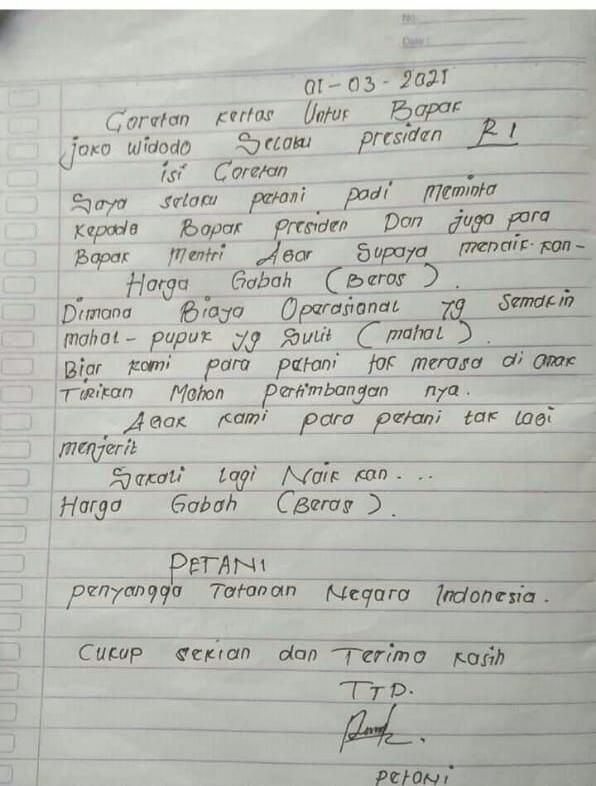 No.
Date:
01-03-2021
Coretan kertas Untuk Bapak
joko widodo Selaku presiden RI
isi Coretan
Saya selaku petani padi meminta
kepada Bapak presiden Dan juga para
Bapak Mentri Agar Supaya menaik-kan-
Harga Gabah (Beras).
Dimana Biaya Operasional yg semakin
mahal- pupuk yg Sulit (mahal).
Biar kami para petani tak merasa di anak
Tirikan Mohon Pertimbangan nya.
Agak kami para petani tak lagi
menjerit
Sekali lagi Naik kan...
Harga Gabah (Beras).
PETANI
penyangga Tatanan Negara Indonesia.
Cukup sekian dan Terima kasih
TTD.
petani